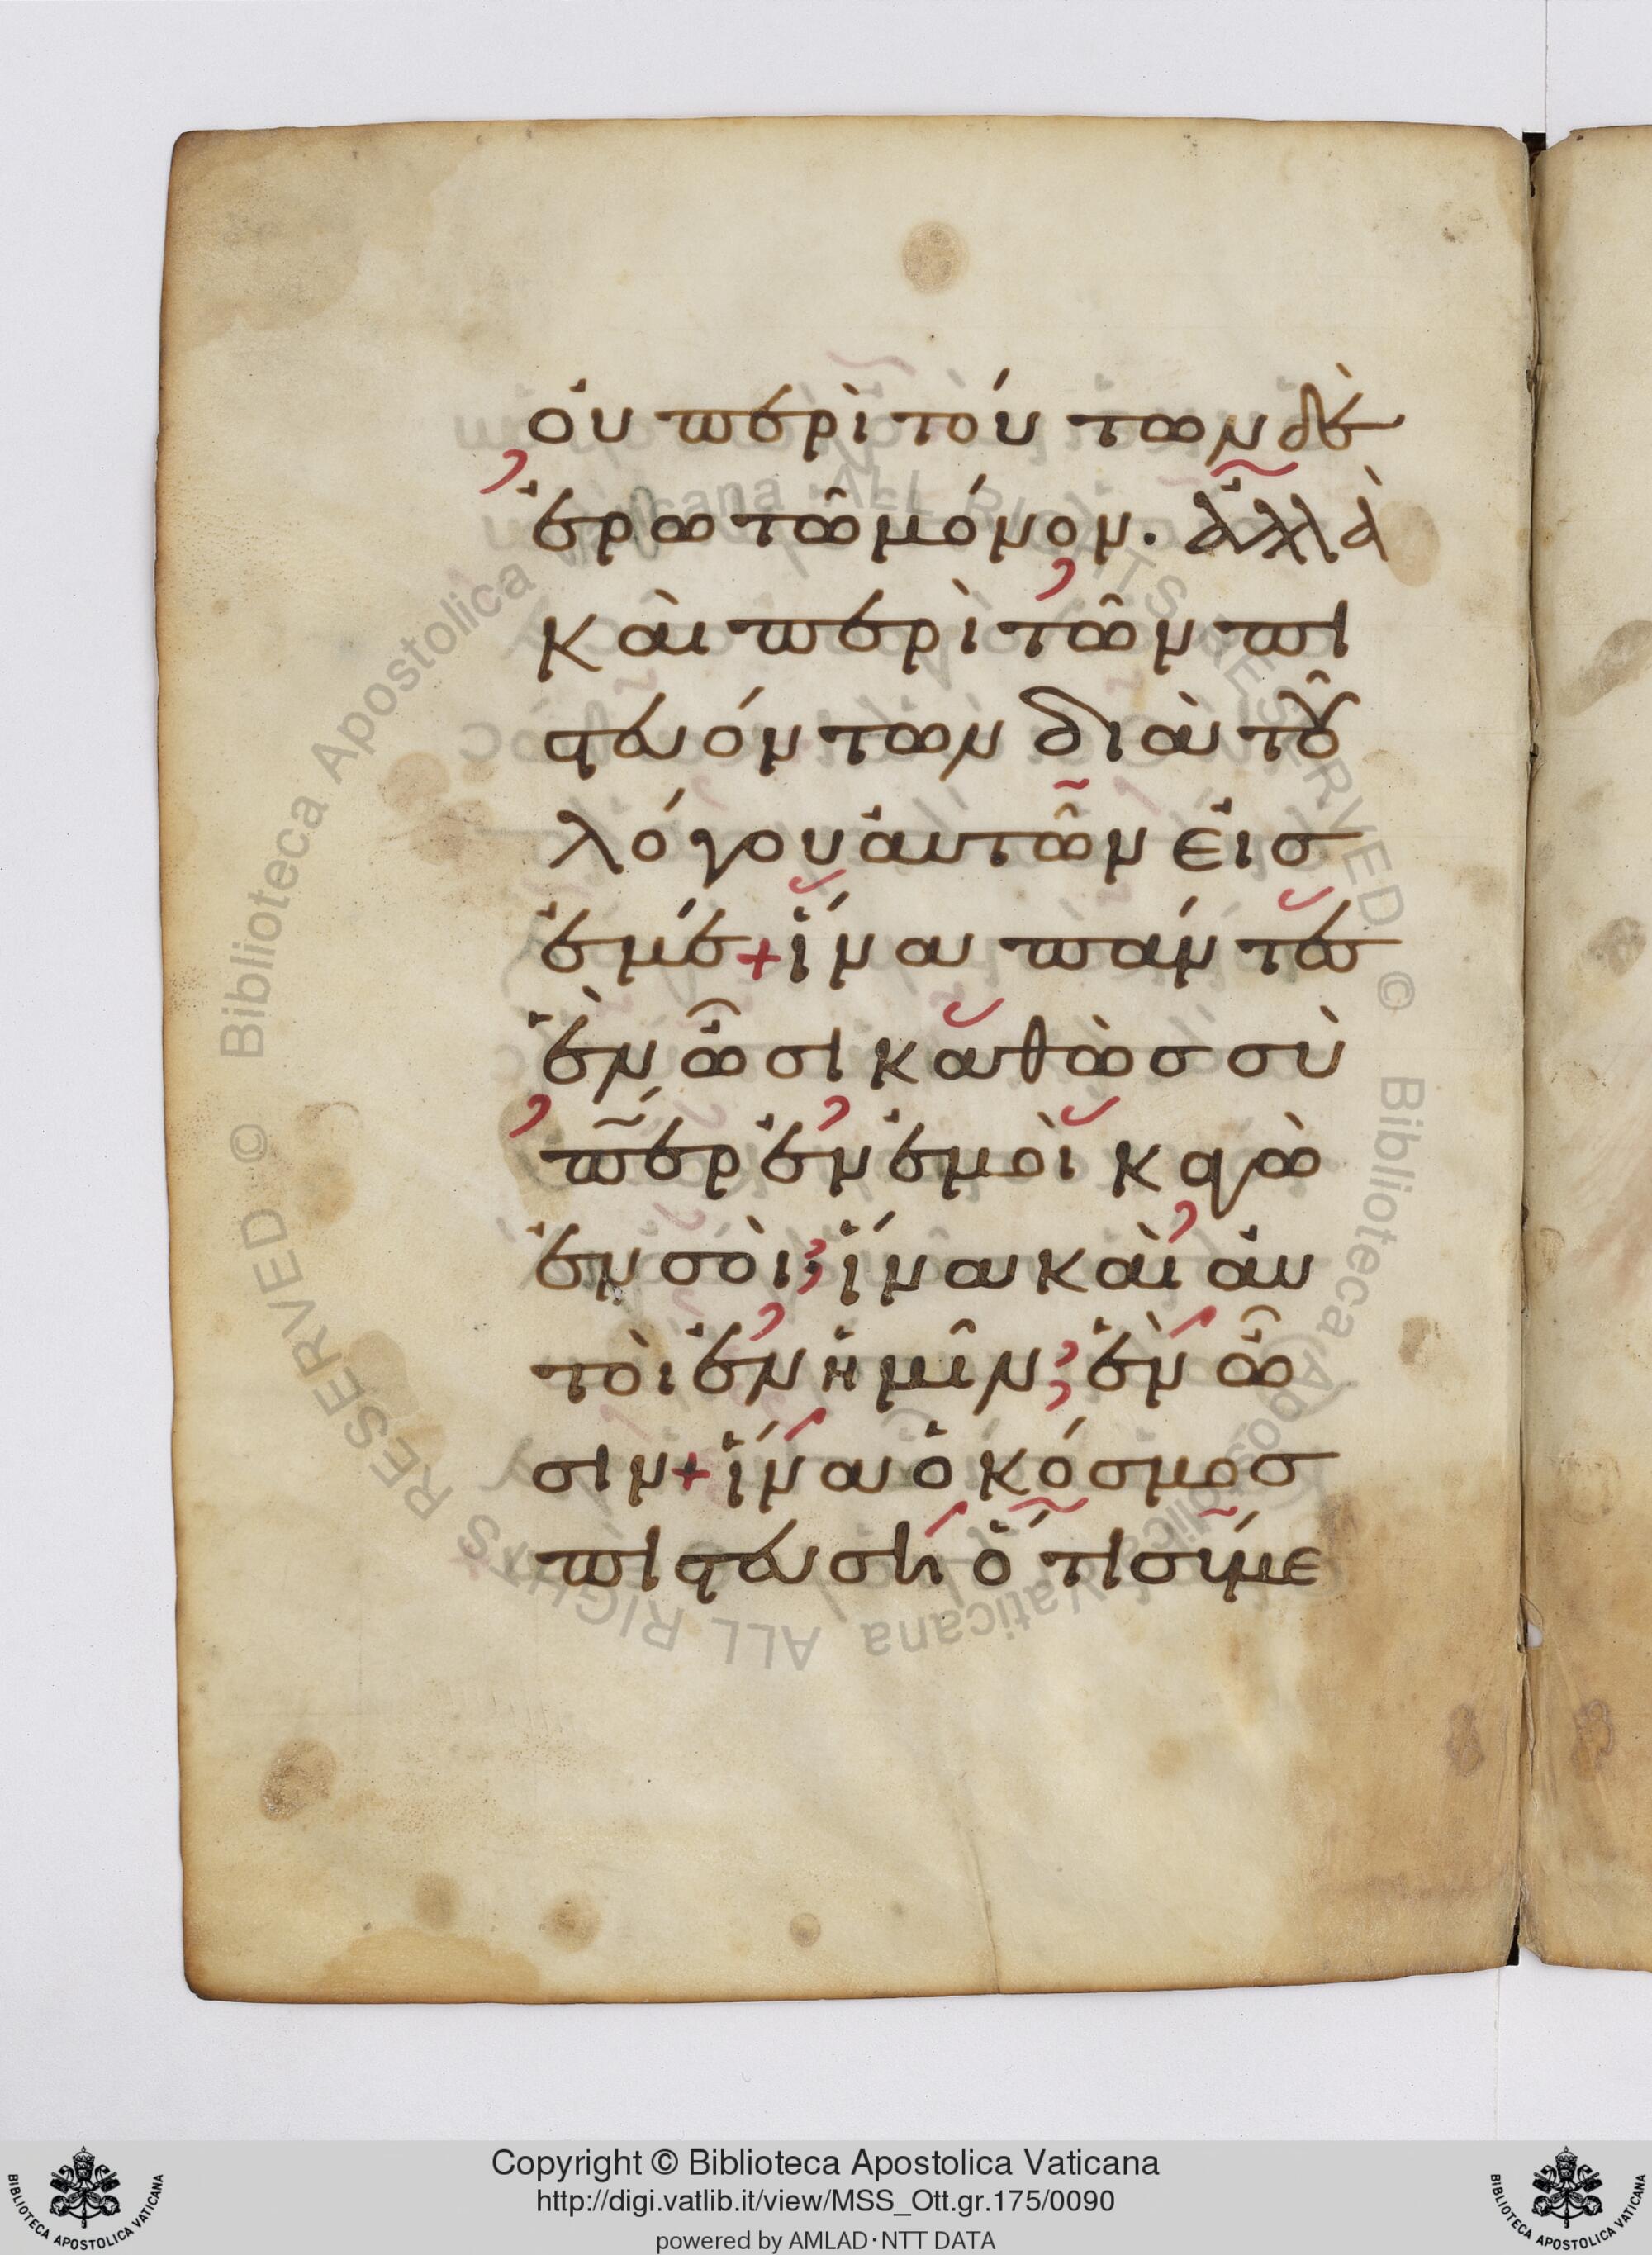 ὀυ περὶ τόυτων δὲ
ἐρωτῶ μόνον. ἀλλὰ
καὶ περὶ τῶν πι
στευόντων διὰ τοῦ
λόγου ἀυτῶν ἐις
ἐμέ + ἵνα πάντες
ἓν ὦσι καθὼς σὺ
π̅ε̅ρ ἐν ἐμοὶ κἀγὼ
ἐν σοὶ ἵνα καὶ ἀυ
τοὶ ἐν ἡμῖν ἓν ὦ
σιν + ἵνα ὁ κόσμος
πιστεύση ὅτι σύ με
Biblioteca Apostolica Vaticana ALL RIGHTS RESERVED ©
Biblioteca Apostolica Vaticana ALL RIGHTS RESERVED ©
Copyright © Biblioteca Apostolica Vaticana
http://digi.vatlib.it/view/MSS_Ott.gr.175/0090
powered by AMLAD·NTT DATA
BIBLIOTECA APOSTOLICA VATICANA
BIBLIOTECA APOSTOLICA VATICANA